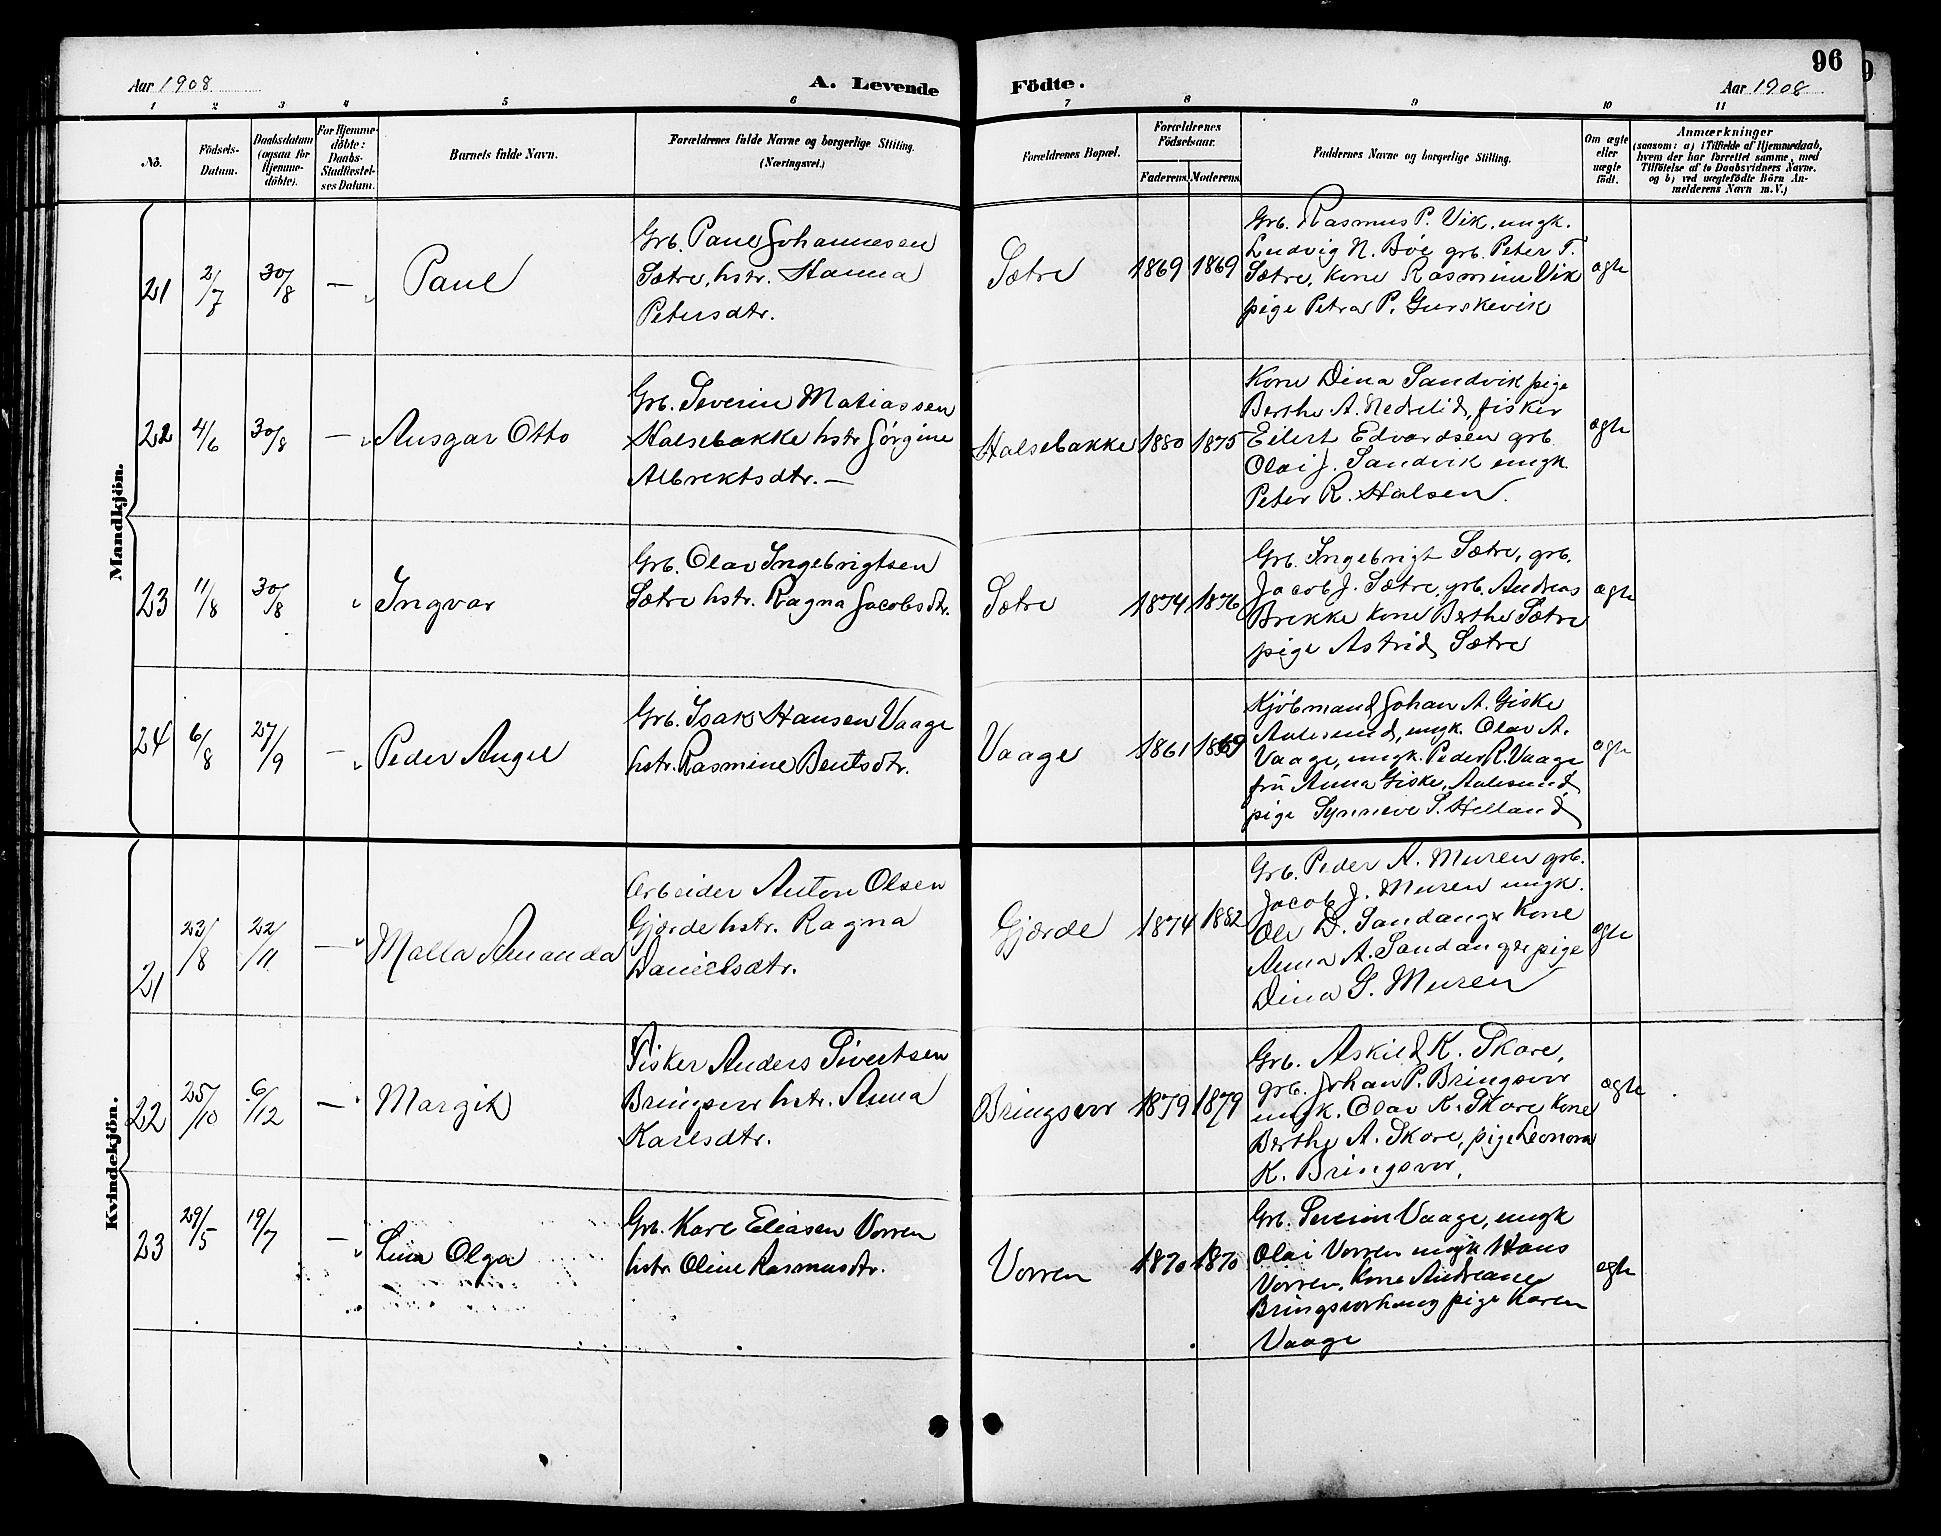 96
Aar 1908
A. Levende
Födte.
Aar 1908
1 2 3 4 5 6 7 8 9 10 11
No.
Födsels-Datum.
Daabsdatum (ogsaa for Hjemme-döbte).
For Hjemme-döbte: Daabs-Stadfæstel-ses Datum.
Barnets fulde Navn.
Forældrenes fulde Navne og borgerlige Stilling.
(Næringsvei.)
Forældrenes Bopæl.
Forældrenes Födselsaar.
Faderens. Moderens.
Faddernes Navne og borgerlige Stilling.
Om ægte eller uægte födt.
Anmærkninger
(saasom: a) i Tilfælde af Hjemmedaab,
hvem der har forrettet samme, med
Tilföielse af to Daabsvidners Navne.
og b) ved uægtefödte Börn An-
melderens Navn m.V.)
Mandkjön.
21 2/7 30/8 — Paul
Grb. Paul Johannesen
Sætre, hstr. Hanna
Petersdtr.
Sætre 1869 1869
Grb. Rasmus P. Vik, ungk.
Ludvig N. Böe grb. Peter T.
Sætre, kone Rasmine Vik
pige Petra P. Gurskevik
ægte
22 4/6 30/8 — Ansgar Otto
Grb. Severin Matiassen
Halsebakke hstr. Jörgine
Albrektsdtr. —
Halsebakke 1880 1875
Kone Dina Sandvik pige
Berthe A. Nedrelid, fisker
Eilert Edvardsen grb.
Olai J. Sandvik ungk.
Peter R. Halsen.
ægte
23 11/8 30/8 Ingvar
Grb. Olav Ingebrigtsen
Sætre hstr. Ragna Jacobsdtr.
Sætre 1874 1876
Grb. Ingebrigt Sætre, grb.
Jacob J. Sætre, grb. Andreas
Brekke kone Berthe Sætre
pige Astrid Sætre
ægte
24 6/8 27/9 — Peder Angel
Grb. Isak Hansen Vaage
hstr. Rasmine Bentsdtr.
Vaage 1861 1869
Kjöbmand Johan A. Giske
Aalesund, ungk. Olav A.
Vaage, ungk. Peder R. Vaage
frú Anna Giske, Aalesund,
pige Synneve S. Helland
ægte
Kvindekjön.
21 23/8 22/11 — Malla Amanda
Arbeider Anton Olsen
Gjærde hstr. Ragna
Danielsdtr.
Gjærde 1874 1882
Grb. Peder A. Muren grb.
Jacob J. Muren ungk.
Ole D. Sandanger kone
Anna A. Sandanger pige
Dina G. Muren
ægte
22 25/10 6/12 — Margit
Fisker Anders Sivertsen
Bringsvor hstr. Anna
Karlsdtr.
Bringsvor 1879 1879
Grb. Askild K. Skare,
grb. Johan P. Bringsvor
ungk. Olav K. Skare kone
Berthe A. Skare, pige Leonora
K. Bringsvor.
ægte
23 29/5 19/7 — Lina Olga
Grb. Karl Eliasen Vorren
hstr. Oline Rasmusdtr.
Vorren 1870 1870
Grb. Severin Vaage, ungk
Olai Vorren ungk Hans
Vorren, kone Andreane
Bringsvorhaug pige Karen
Vaage
ægte